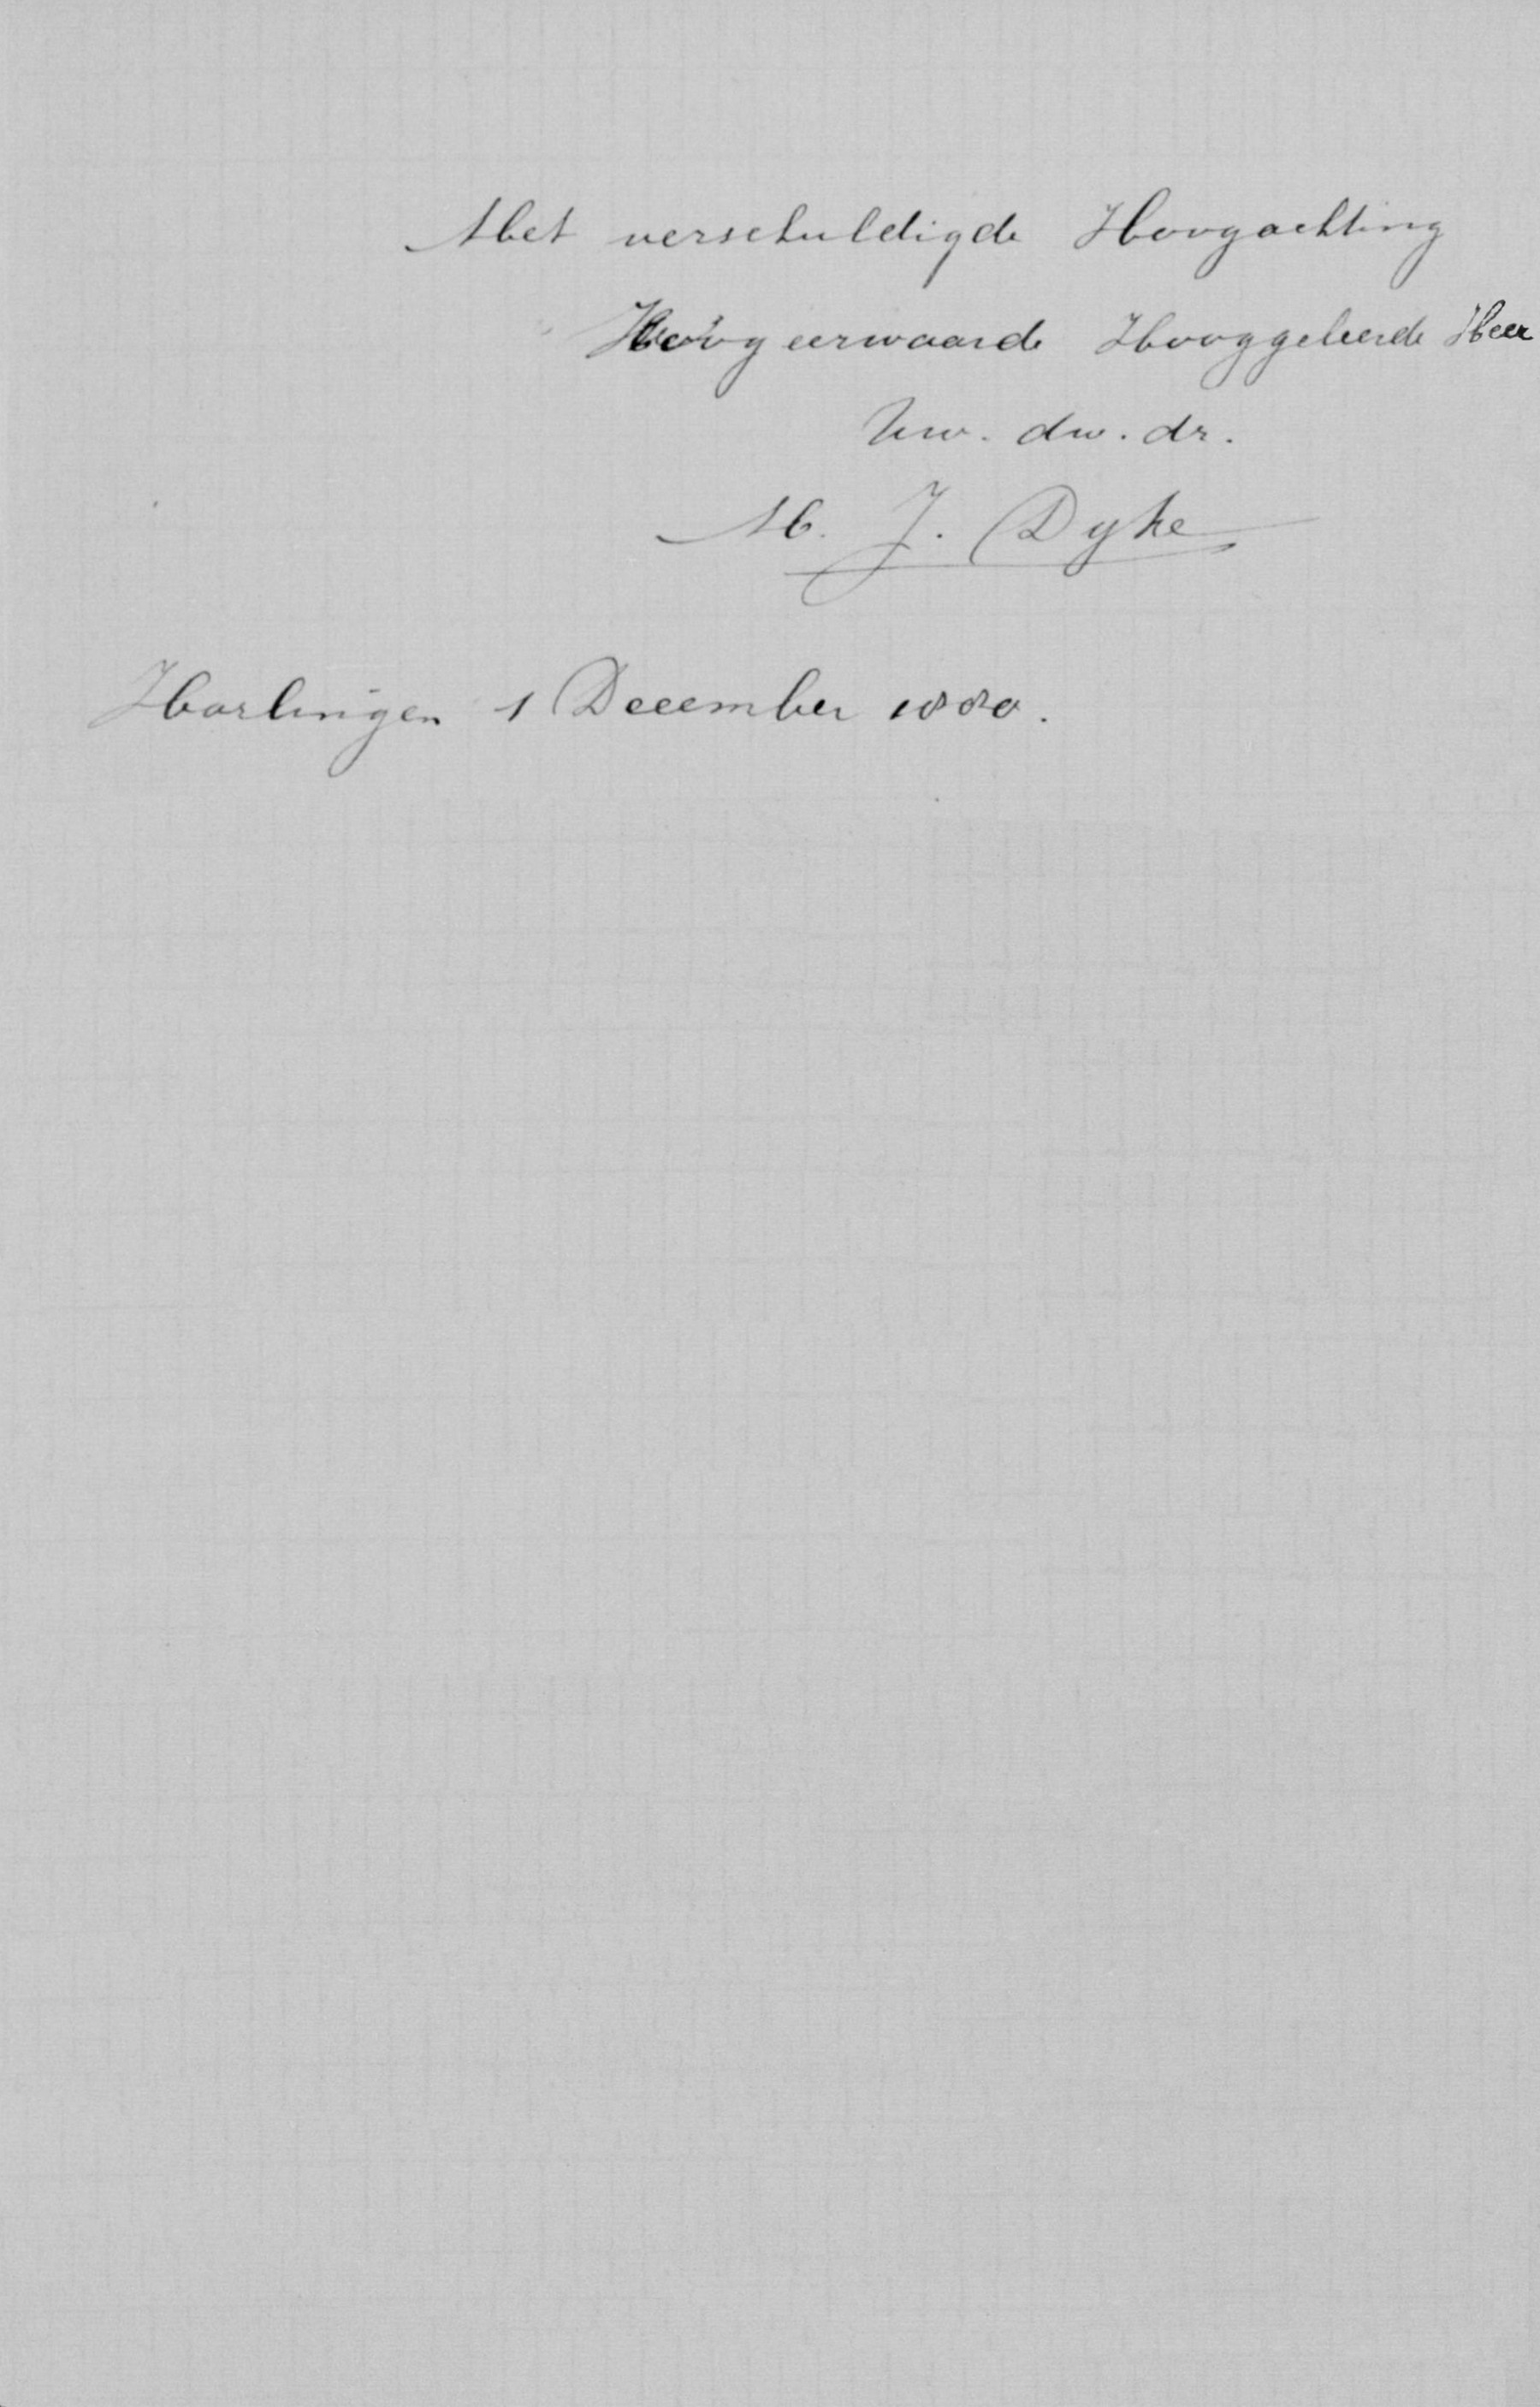 Met verschuldigde Hoogachting
Hoogeerwaarde Hooggeleerde Heer
Uw. dw. dr.
M. J. Dyke
Harlingen 1 December 1880.